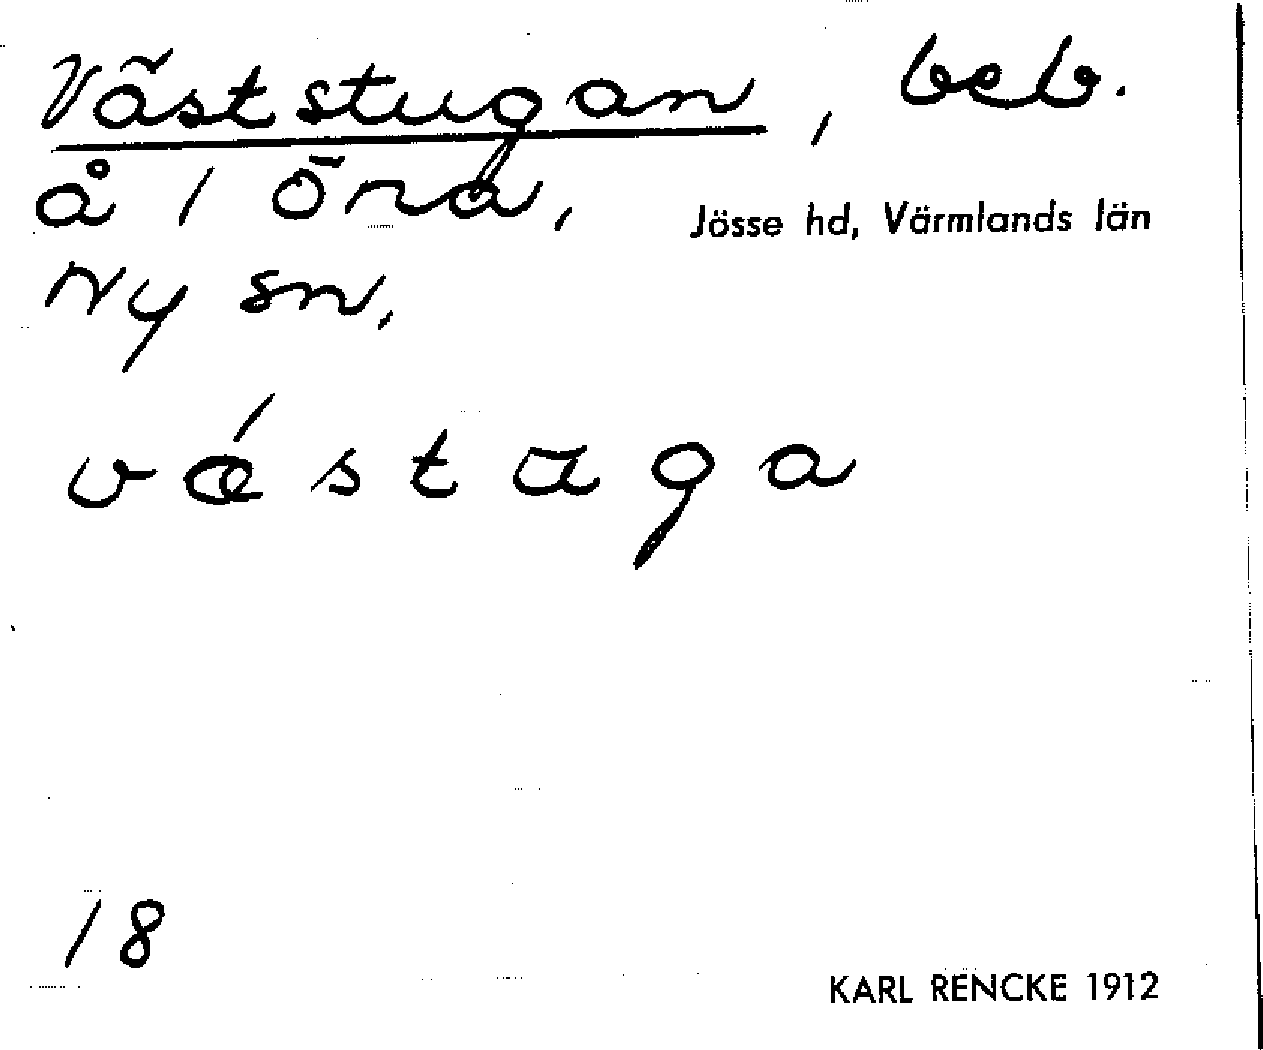 Väststugan, beb.
å 1 Öna,
Jösse hd, Värmlands län
Ny sn,
vǽstuga
18
KARL RENCKE 1912